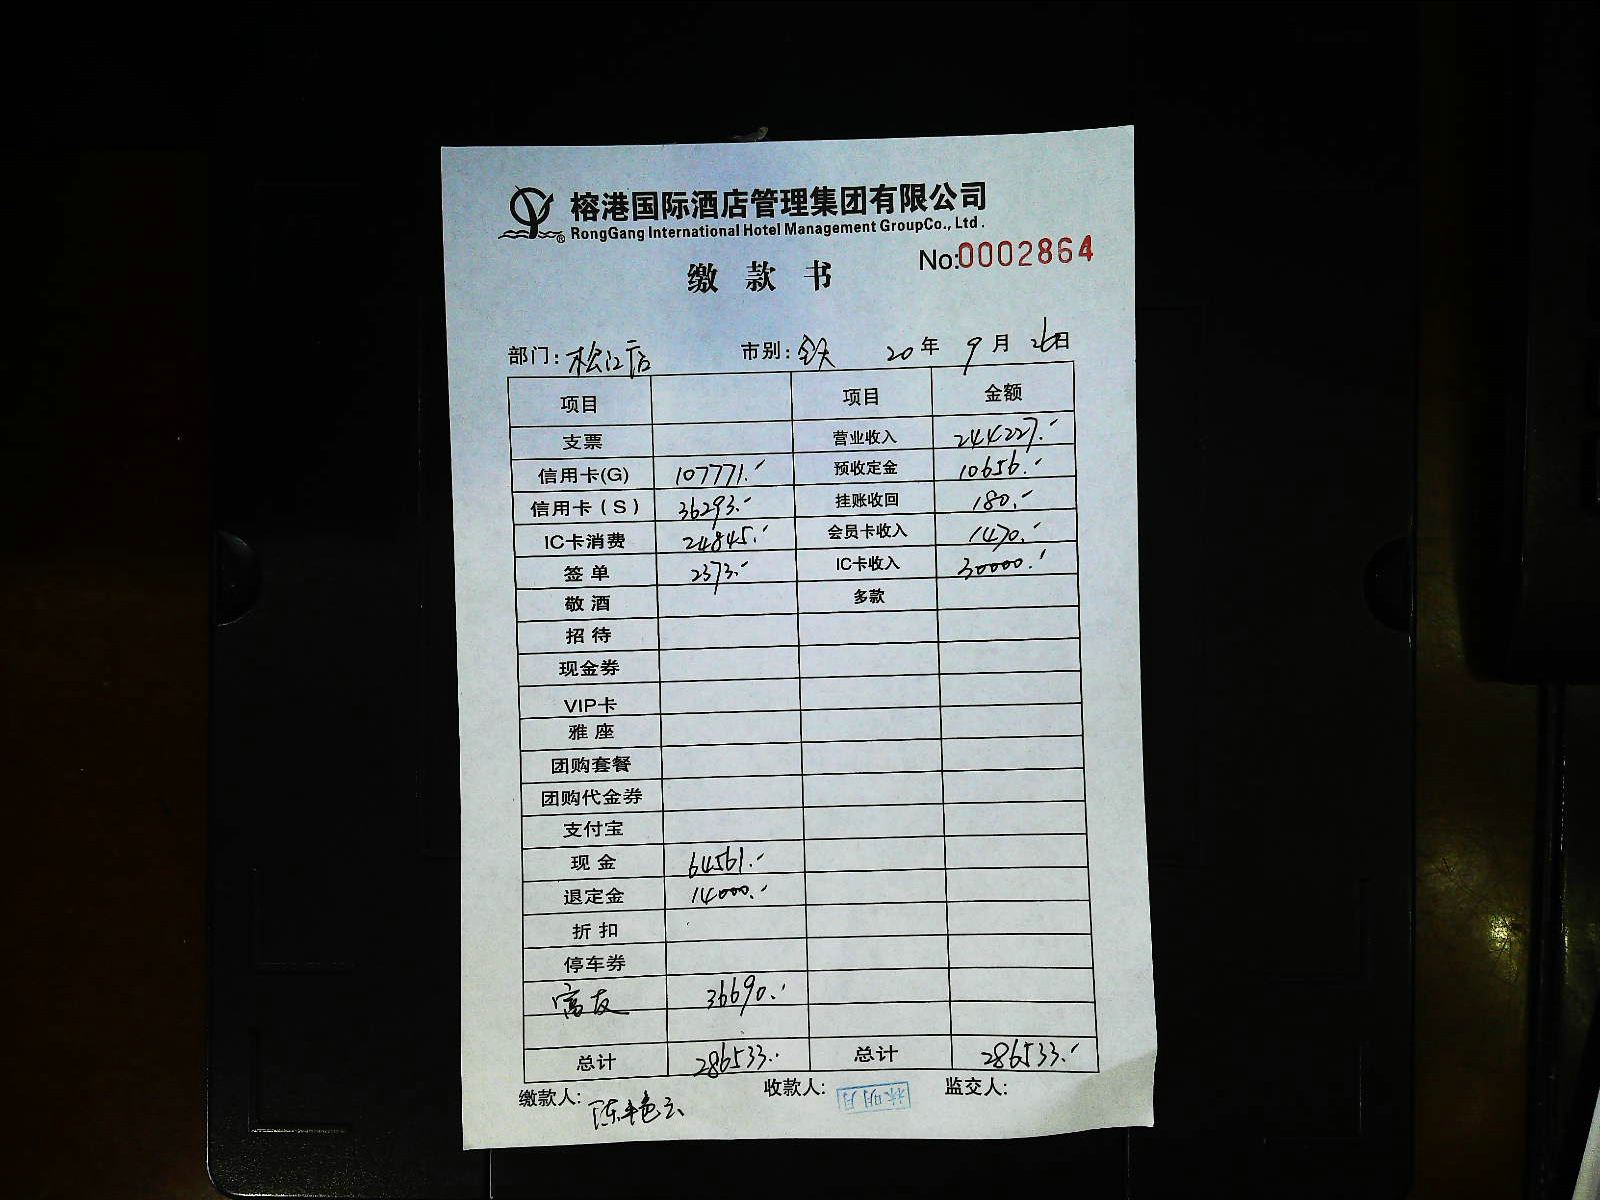 榕港国际酒店管理集团有限公司
® RongGang International Hotel Management GroupCo., Ltd.
No:0002864
缴款书
部门: 松江店 市别: 全天 20年 9月 26日
项目 项目 金额
支票 营业收入 244227.-
信用卡(G) 107771.- 预收定金 10656.-
信用卡(S) 36293.- 挂账收回 180.-
IC卡消费 24845.- 会员卡收入 1470.-
签单 2373.- IC卡收入 30000.-
敬酒 多款
招待
现金券
VIP卡
雅座
团购套餐
团购代金券
支付宝
现金 64561.-
退定金 14000.-
折扣
停车券
富友 36690.-
总计 286533.- 总计 286533.-
缴款人: 陈艳云 收款人: 林明月 监交人: